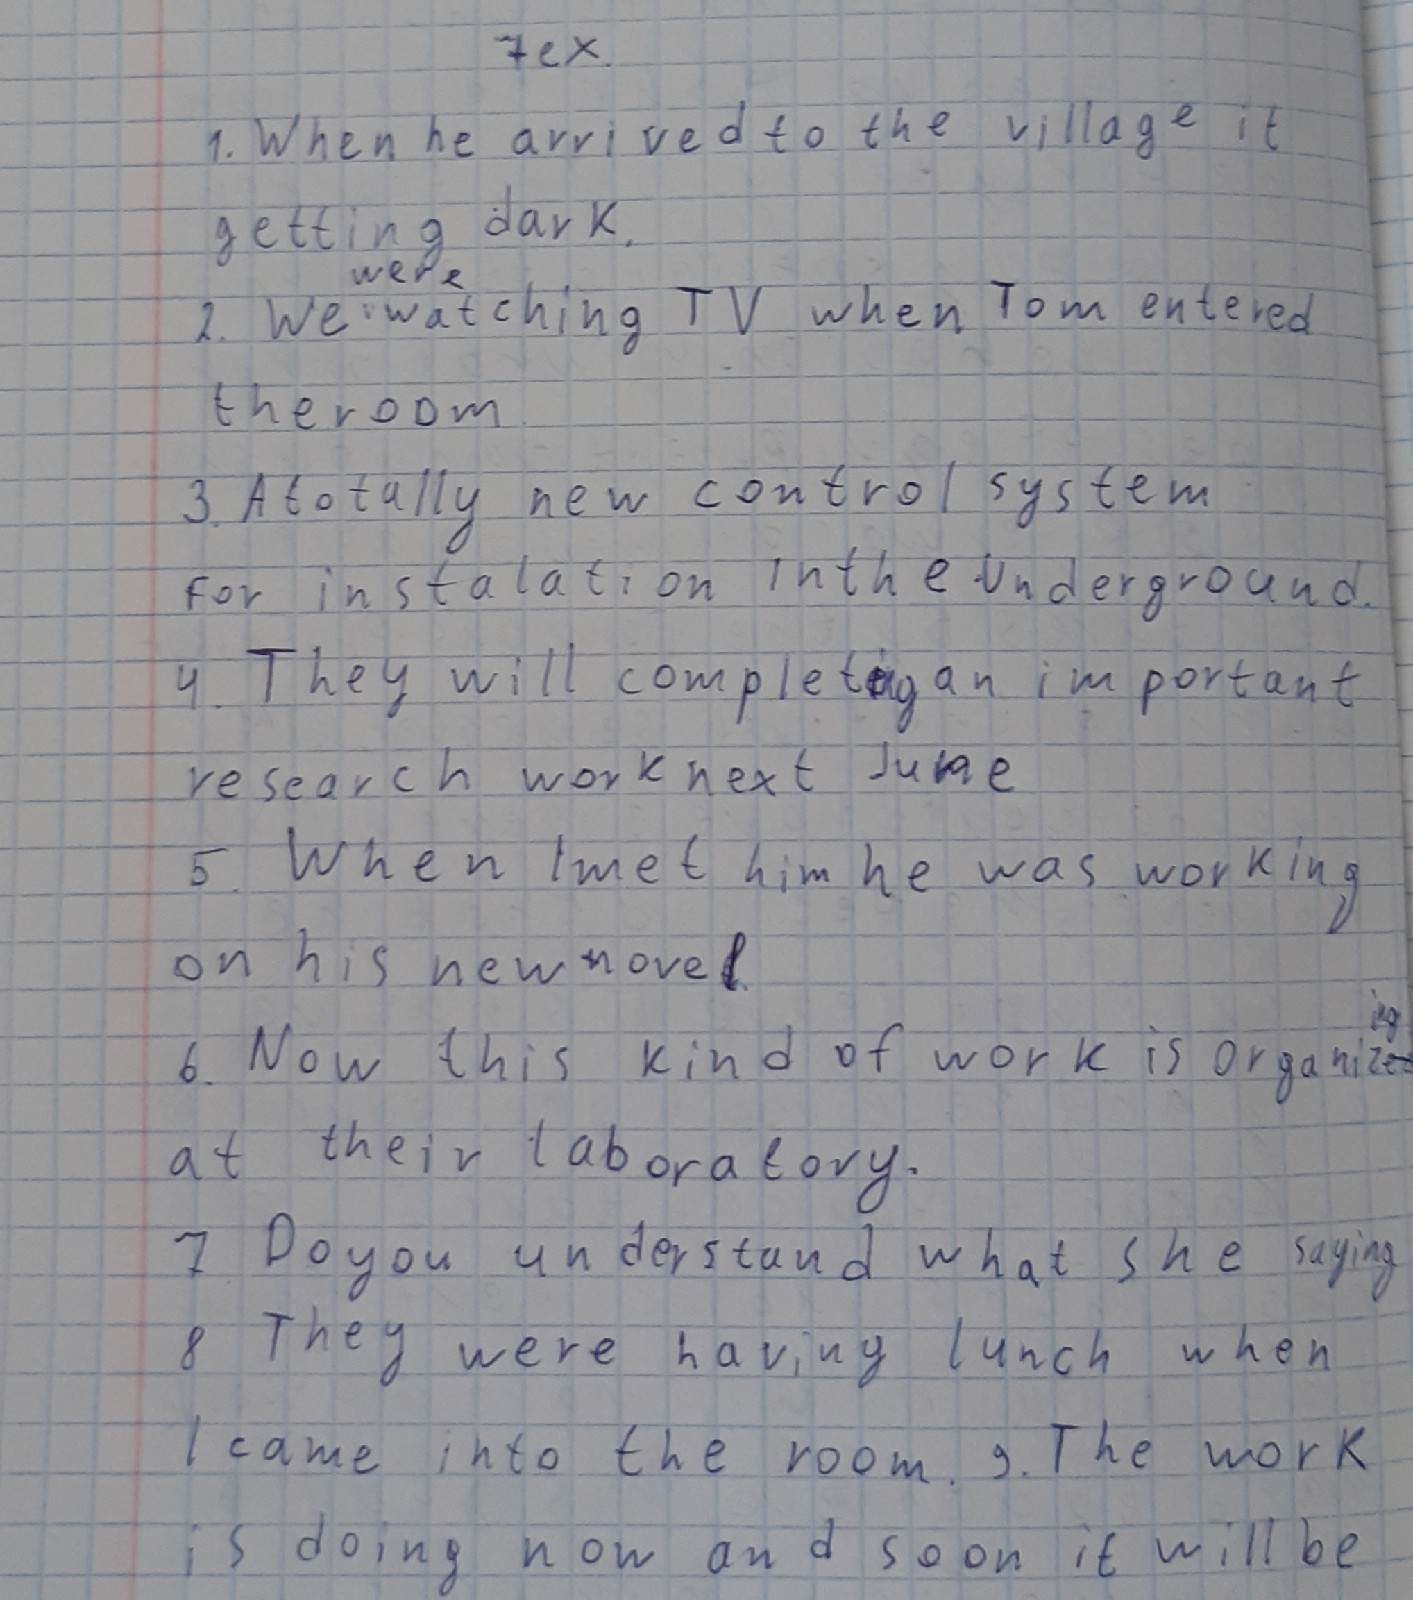 7ex.
1. When he arrived to the village it
getting dark.
were
2. We watching TV when Tom entered
the room
3. A totally new control system
For instalation in the Underground.
4. They will completing an important
research work next June
5. When I met him he was working
on his new novel.
ing
6. Now this kind of work is organized
at their laboratory.
7 Do you understand what she saying
8 They were having lunch when
I came into the room. 9. The work
is doing now and soon it will be